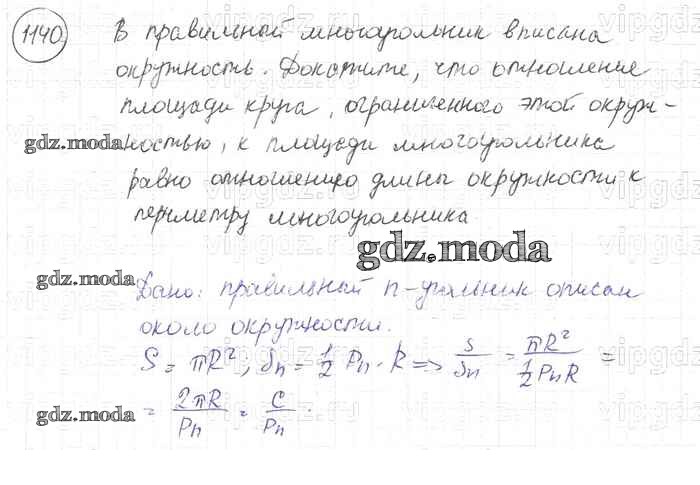 1140. В правильный многоугольник вписана
окружность. Докажите, что отношение
площади круга, ограниченного этой окруж-
ностью, к площади многоугольника
равно отношению длины окружности к
периметру многоугольника
gdz.moda
gdz.moda
gdz.moda
Дано: правильный n-угольник описан
около окружности.
S = πR², Sn = 1/2 Pn · R ⇒ S/Sn = πR²/(1/2 PnR) =
= 2πR/Pn = C/Pn.
gdz.moda